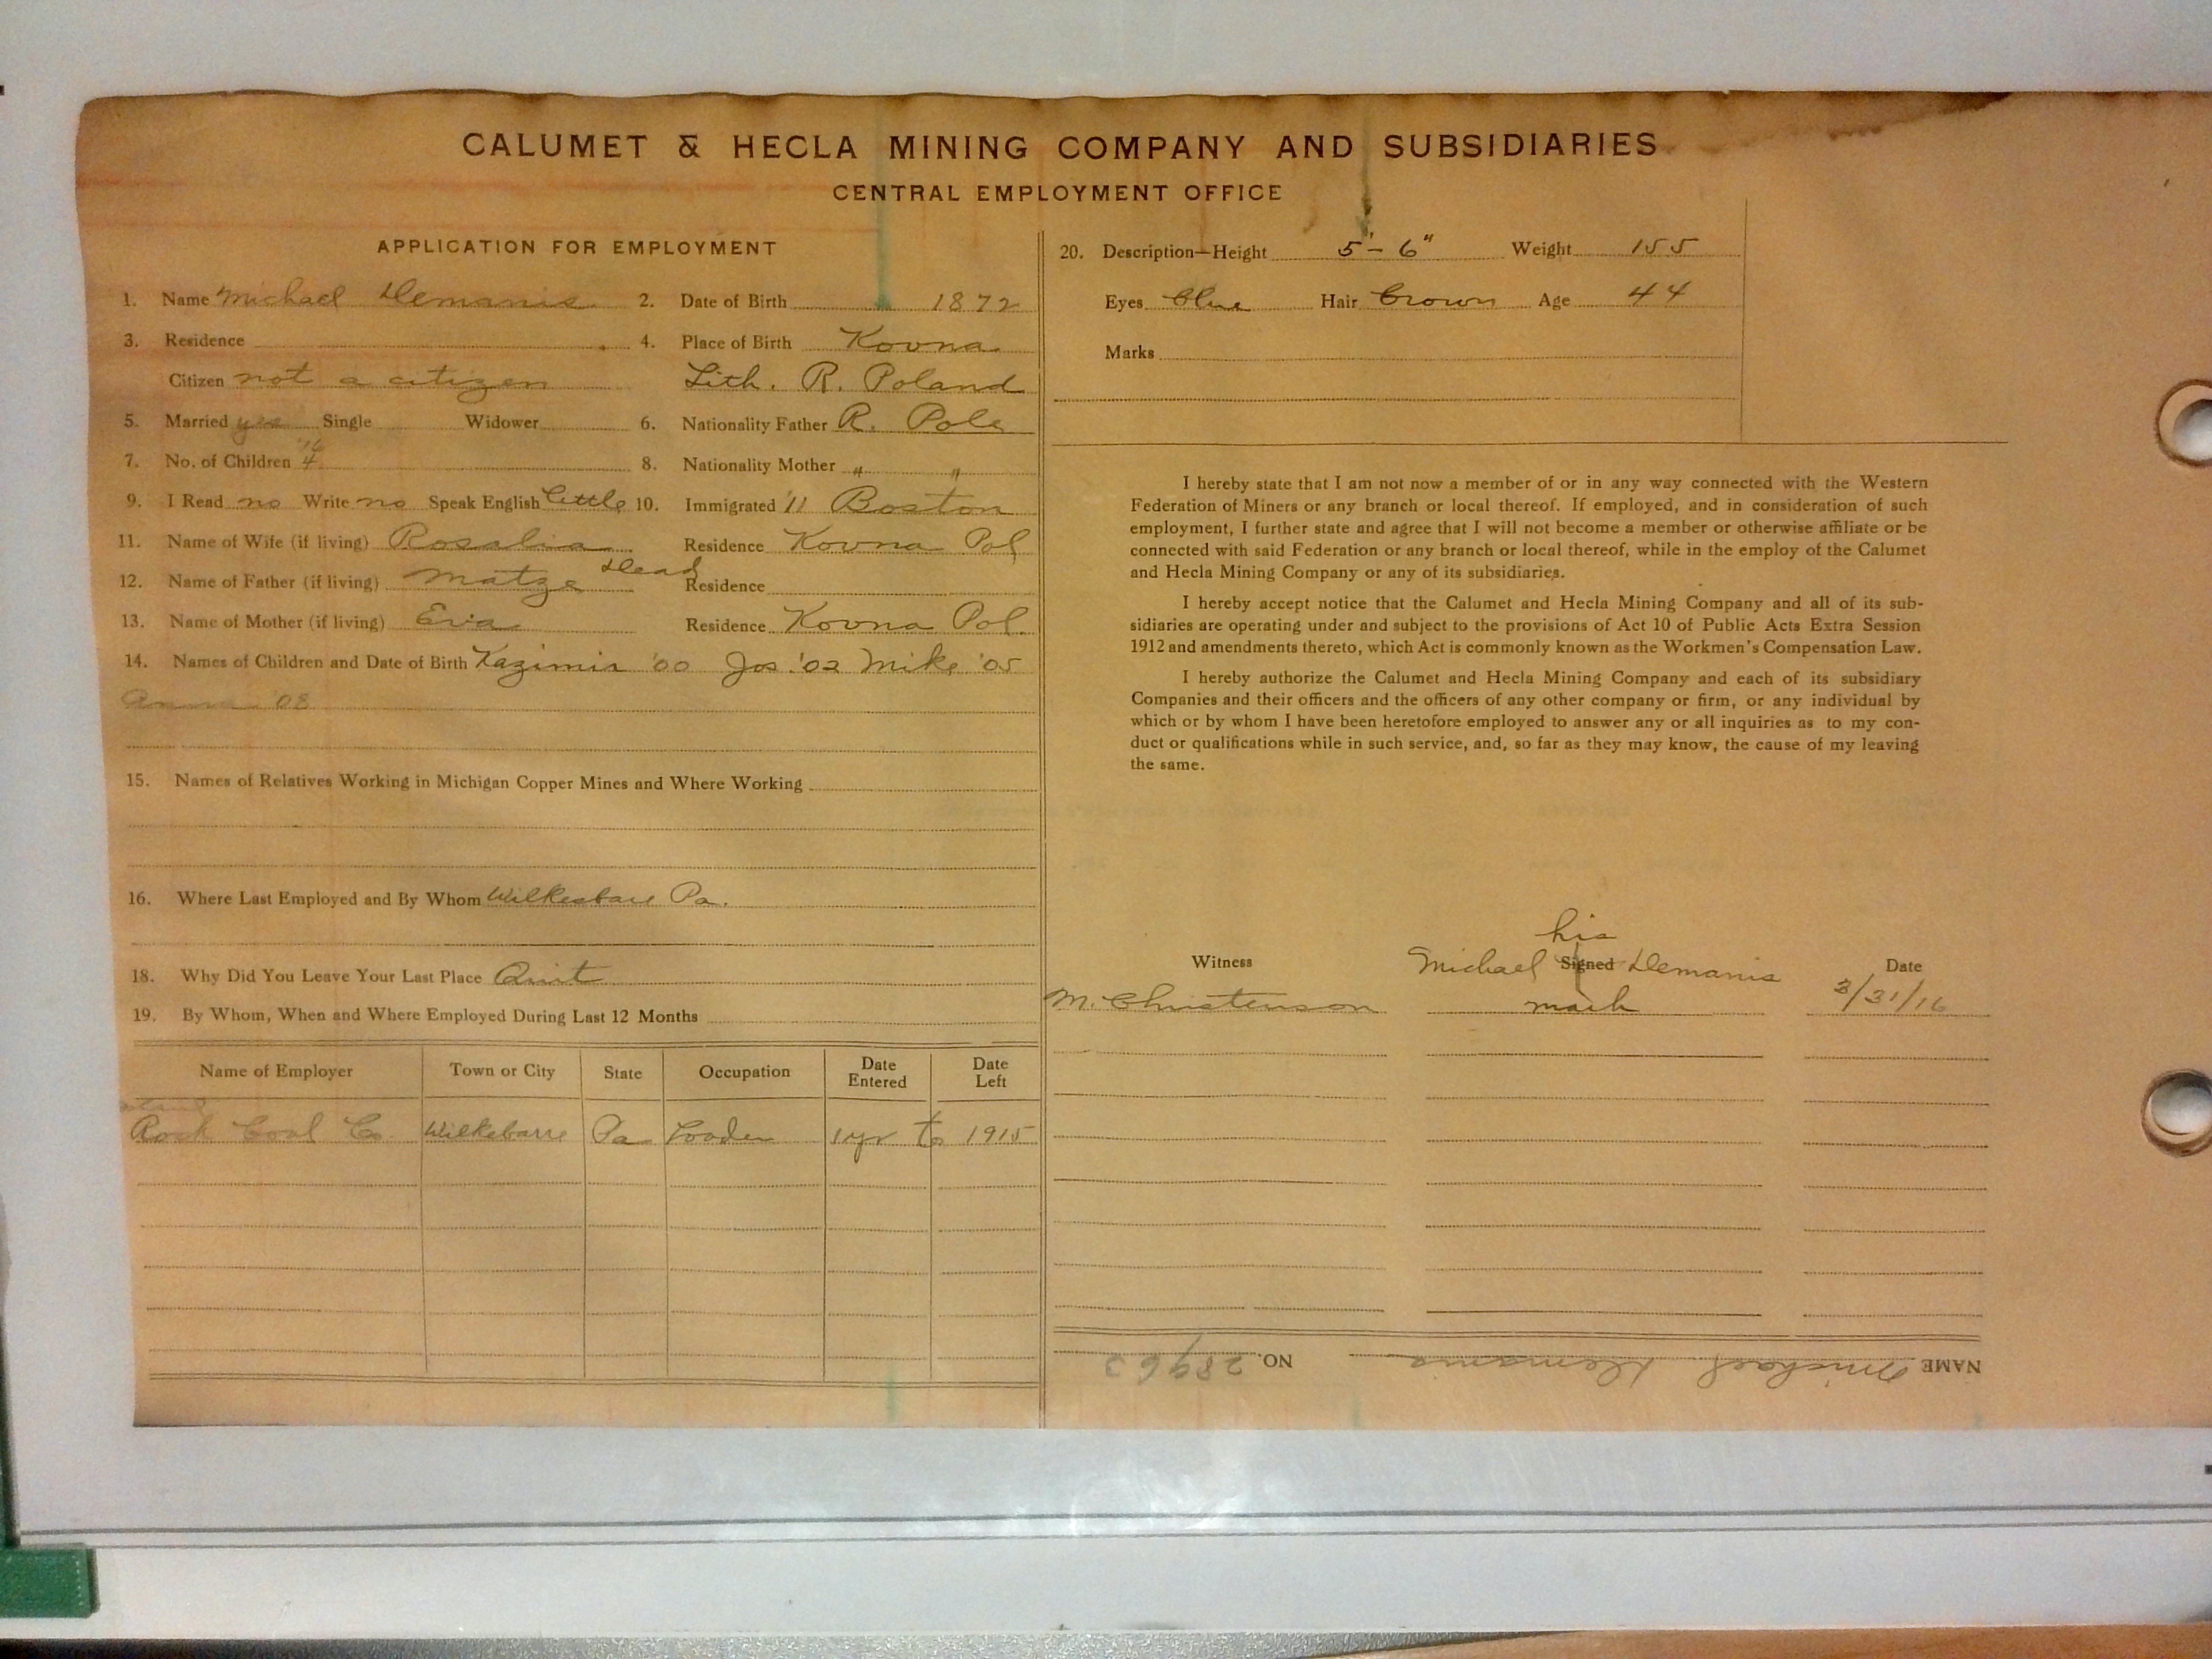 CALUMET & HECLA MINING COMPANY AND SUBSIDIARIES
CENTRAL EMPLOYMENT OFFICE
APPLICATION FOR EMPLOYMENT
1. Name Michael Demanis 2. Date of Birth 1872
3. Residence 4. Place of Birth Kovna
Citizen not a citizen Lith. R. Poland
5. Married yes Single Widower 6. Nationality Father R. Pole
7. No. of Children 4 8. Nationality Mother " "
9. I Read no Write no Speak English little 10. Immigrated '11 Boston
11. Name of Wife (if living) Rosalia Residence Kovna Pol
12. Name of Father (if living) Matze Dead Residence
13. Name of Mother (if living) Eva Residence Kovna Pol.
14. Names of Children and Date of Birth Kazimir '00 Jos. '02 Mike '05
Anna '08
15. Names of Relatives Working in Michigan Copper Mines and Where Working
16. Where Last Employed and By Whom Wilkesbare Pa.
18. Why Did You Leave Your Last Place Quit
19. By Whom, When and Where Employed During Last 12 Months
Name of Employer Town or City State Occupation Date Entered Date Left
Rock Coal Co. Wilkebarre Pa Loader 1 yr to 1915
20. Description—Height 5'-6" Weight 155
Eyes blue Hair brown Age 44
Marks
I hereby state that I am not now a member of or in any way connected with the Western
Federation of Miners or any branch or local thereof. If employed, and in consideration of such
employment, I further state and agree that I will not become a member or otherwise affiliate or be
connected with said Federation or any branch or local thereof, while in the employ of the Calumet
and Hecla Mining Company or any of its subsidiaries.
I hereby accept notice that the Calumet and Hecla Mining Company and all of its sub-
sidiaries are operating under and subject to the provisions of Act 10 of Public Acts Extra Session
1912 and amendments thereto, which Act is commonly known as the Workmen's Compensation Law.
I hereby authorize the Calumet and Hecla Mining Company and each of its subsidiary
Companies and their officers and the officers of any other company or firm, or any individual by
which or by whom I have been heretofore employed to answer any or all inquiries as to my con-
duct or qualifications while in such service, and, so far as they may know, the cause of my leaving
the same.
his
Witness Michael Signed Demanis Date
M. Christenson mark 3/31/16
NAME Michael Demanis NO. 28963